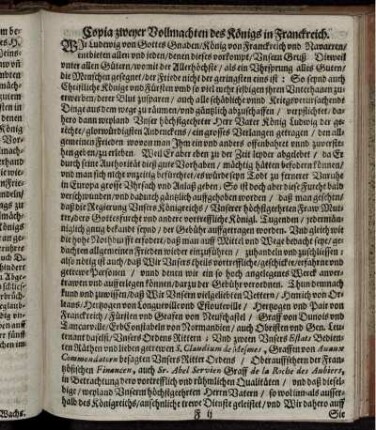 Copia zweyer Vollmachten des Königs in Franckreich.
WIr Ludewig von Gottes Gnaden/ König von Franckreich vnd Navarren/
entbieten allen vnd jeden/ denen dieses vorkompt/ Vnsern Gruß. Dieweil
vnter allen Gütern/ womit der Allerhöchste/ als ein Vhrsprung alles Guten/
die Menschen gesegnet/ der Friede nicht der geringsten eins ist: So seynd auch
Christliche Könige vnd Fürsten vmb so viel mehr selbigen jhren Vnterthanen zu
erwerben/ derer Blut zusparen/ auch alle schädliche vnnd Kriegsverursachende
Dinge aus dem weg zu räumen/ vnd gäntzlich abzuschaffen/ verpflichtet/ da-
hero dann weyland Vnser höchstgeehrter Herr Vater König Ludwig der ge-
rechte/ glorwürdigsten Andenckens/ ein grosses Verlangen getragen/ den all-
gemeinen Frieden wovon man jhm ein vnd anders offenbahret vnnd zuverste-
hen gegeben/ zu erziehen. Weil Er aber eben zu der Zeit leyder abgelebt/ da Er
durch seine Authorität dieß gute Vorhaben/ mächtig hätten befodern können/
vnd man sich nicht vnzeitig befürchtet/ es würde seyn Todt zu fernerer Vnruhe
in Europa grosse Vhrsach vnd Anlaß geben; So ist doch aber diese Furcht bald
verschwunden/ vnd dadurch gäntzlich auffgehoben worden/ daß man gesehen/
daß die Regierung Vnsers Königreichs/ Vnserer höchstgeehrten Fraw Mut-
ter/ dero Gottesfurcht vnd andere vortreffliche Königl. Tugenden/ jedermän-
niglich gnug bekandt seynd/ der Gebühr auffgetragen worden. Vnd gleich wie
die hohe Nothdurfft erfodert/ daß man auff Mittel vnd Wege bedacht sey/ ge-
dachten allgemeinen Frieden wieder einzuführen/ zuhandeln vnd zuschlüssen/
also nötig ist auch/ daß Wir Vnsers theils vortreffliche/ geschickte/ erfahrne vnd
getrewe Personen/ vnnd denen wie ein so hoch angelegenes Werck anver-
trawen vnd aufferlegen können/ darzu der Gebühr verordnen. Thun demnach
kund vnd zuwissen/ daß Wir Vnsern vielgeliebten Vettern/ Henrich von Or-
leans/ Hertzogen von Longueville von Estouteville/ Hertzogen vnd Pair von
Franckreich/ Fürsten vnd Grafen von Neufchastel/ Graff von Dunois vnd
Tancarville/ Erb Constabeln von Normandien/ auch Obristen vnd Gen. Leu-
tenant daselbst/ Vnsers Ordens Rittern; Vnd zween Vnsers Estats Bedien-
ten Räthen vnd lieben getrewen S. Claudium de Mesmes, Graffen von Avaux
Commendatorn besagten Vnsers Ritter Ordens/ Oberauffsehern der Fran-
tzösischen Financen, auch Sr. Abel Servien Graff de la Roche des Aubiers,
in Betrachtung dero vortrefflich vnd rühmlichen Qualitäten/ vnd daß dieselbi-
ge/ weyland Vnserm höchstgeehrten Herrn Vatern/ so wol inn als ausser-
halb des Königreichs/ ansehnliche trewe Dienste geleistet/ vnd Wir dahero auff
F ij Sie
Wachs.